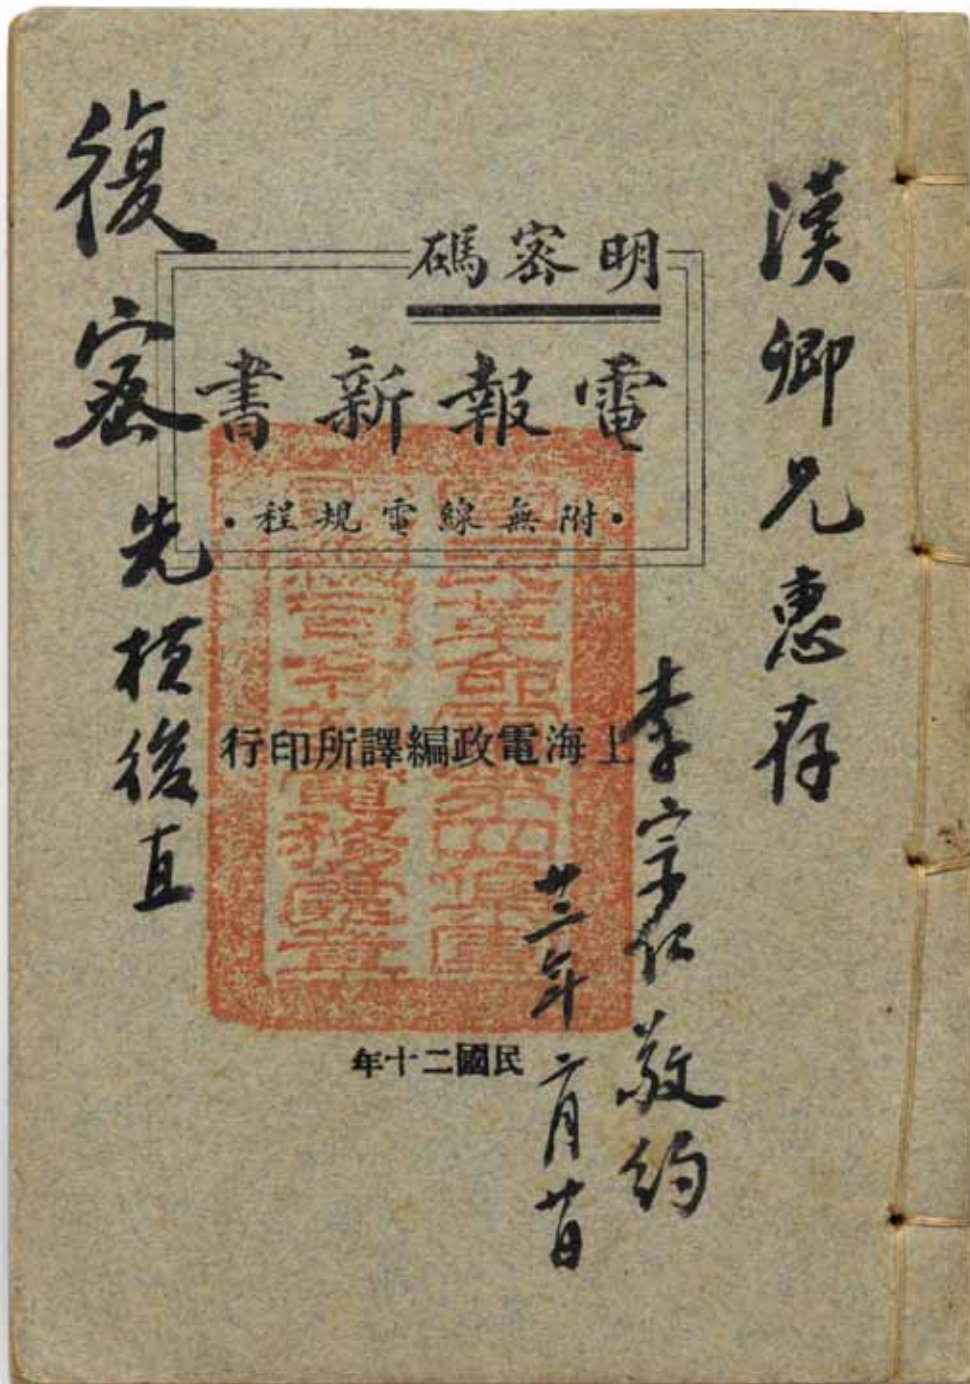 漢卿兄惠存
李宗仁敬約
廿三年二月廿日
明密碼
電報新書
•附無線電規程•
上海電政編譯所印行
民國二十年
復密
先橫後直